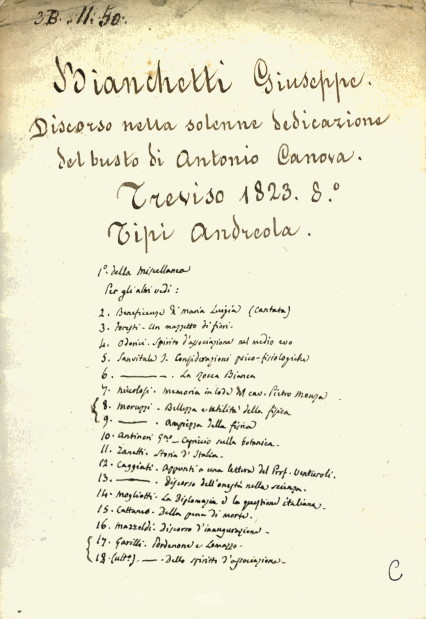 3.B. 11. 50.
Bianchetti Giuseppe.
Discorso nella solenne dedicazione
del busto di Antonio Canova.
Treviso 1823. 8.°
Tipi Andreola.
1°. della Miscellanea
Per gli altri vedi:
2. Beneficenze di Maria Luigia (Cantata)
3. Foresti - Un mazzetto di fiori.
4. Odorici. Spirito d'associazione nel medio evo
5. Sanvitale J. Considerazioni psico-fisiologiche
6. ——— - La Rocca Bianca
7. Nicolosi - Memoria in lode del cav. Pietro
8. Morcuzzi - Bellezza e utilità della fisica
9. ——— - Ampiezza della fisica
10. Antinori - Capricio sulla botanica.
11. Zanetti. Storia d'Italia.
12. Caggiati. Appunti a una lettera del Prof. Venturoli.
13. ——— . Discorso dell'onestà nella scienza.
14. Magliotti - La Diplomazia e la questione italiana.
15. Cattaneo - Della pena di morte.
16. Mazzoldi. discorso d'inaugurazione -
17. Garilli. Pordenone e Lomazzo -
18. (ult°) — - dello spirito d'associazione -
C